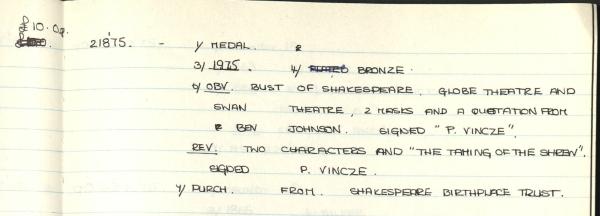 10.0p.
21875. - 1/ MEDAL. 2
3/ 1975 4/ BRONZE.
6/ OBV. BUST OF SHAKESPEARE, GLOBE THEATRE AND
SWAN THEATRE, 2 MASKS AND A QUOTATION FROM
BEN JOHNSON. SIGNED "P. VINCZE".
REV. TWO CHARACTERS AND "THE TAMING OF THE SHREW".
SIGNED P. VINCZE.
7/ PURCH. FROM. SHAKESPEARE BIRTHPLACE TRUST.